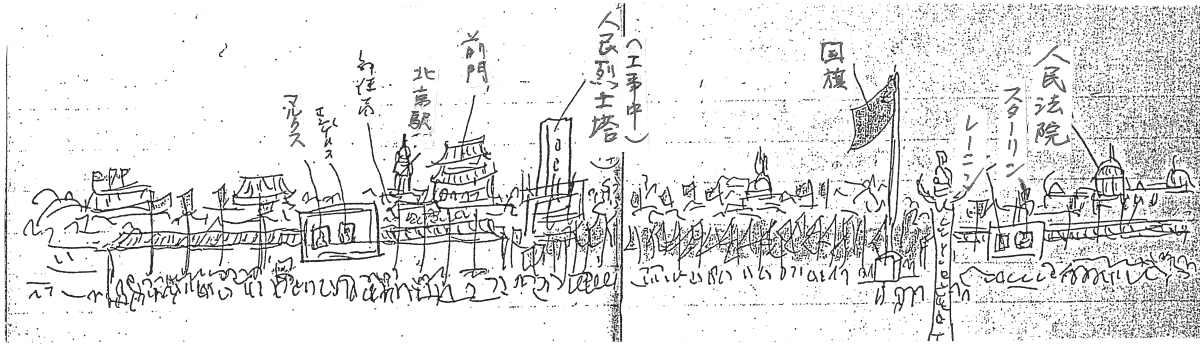 マルクス
エンゲルス
北京駅
前門
人民烈士塔
(工事中)
国旗
レーニン
スターリン
人民法院